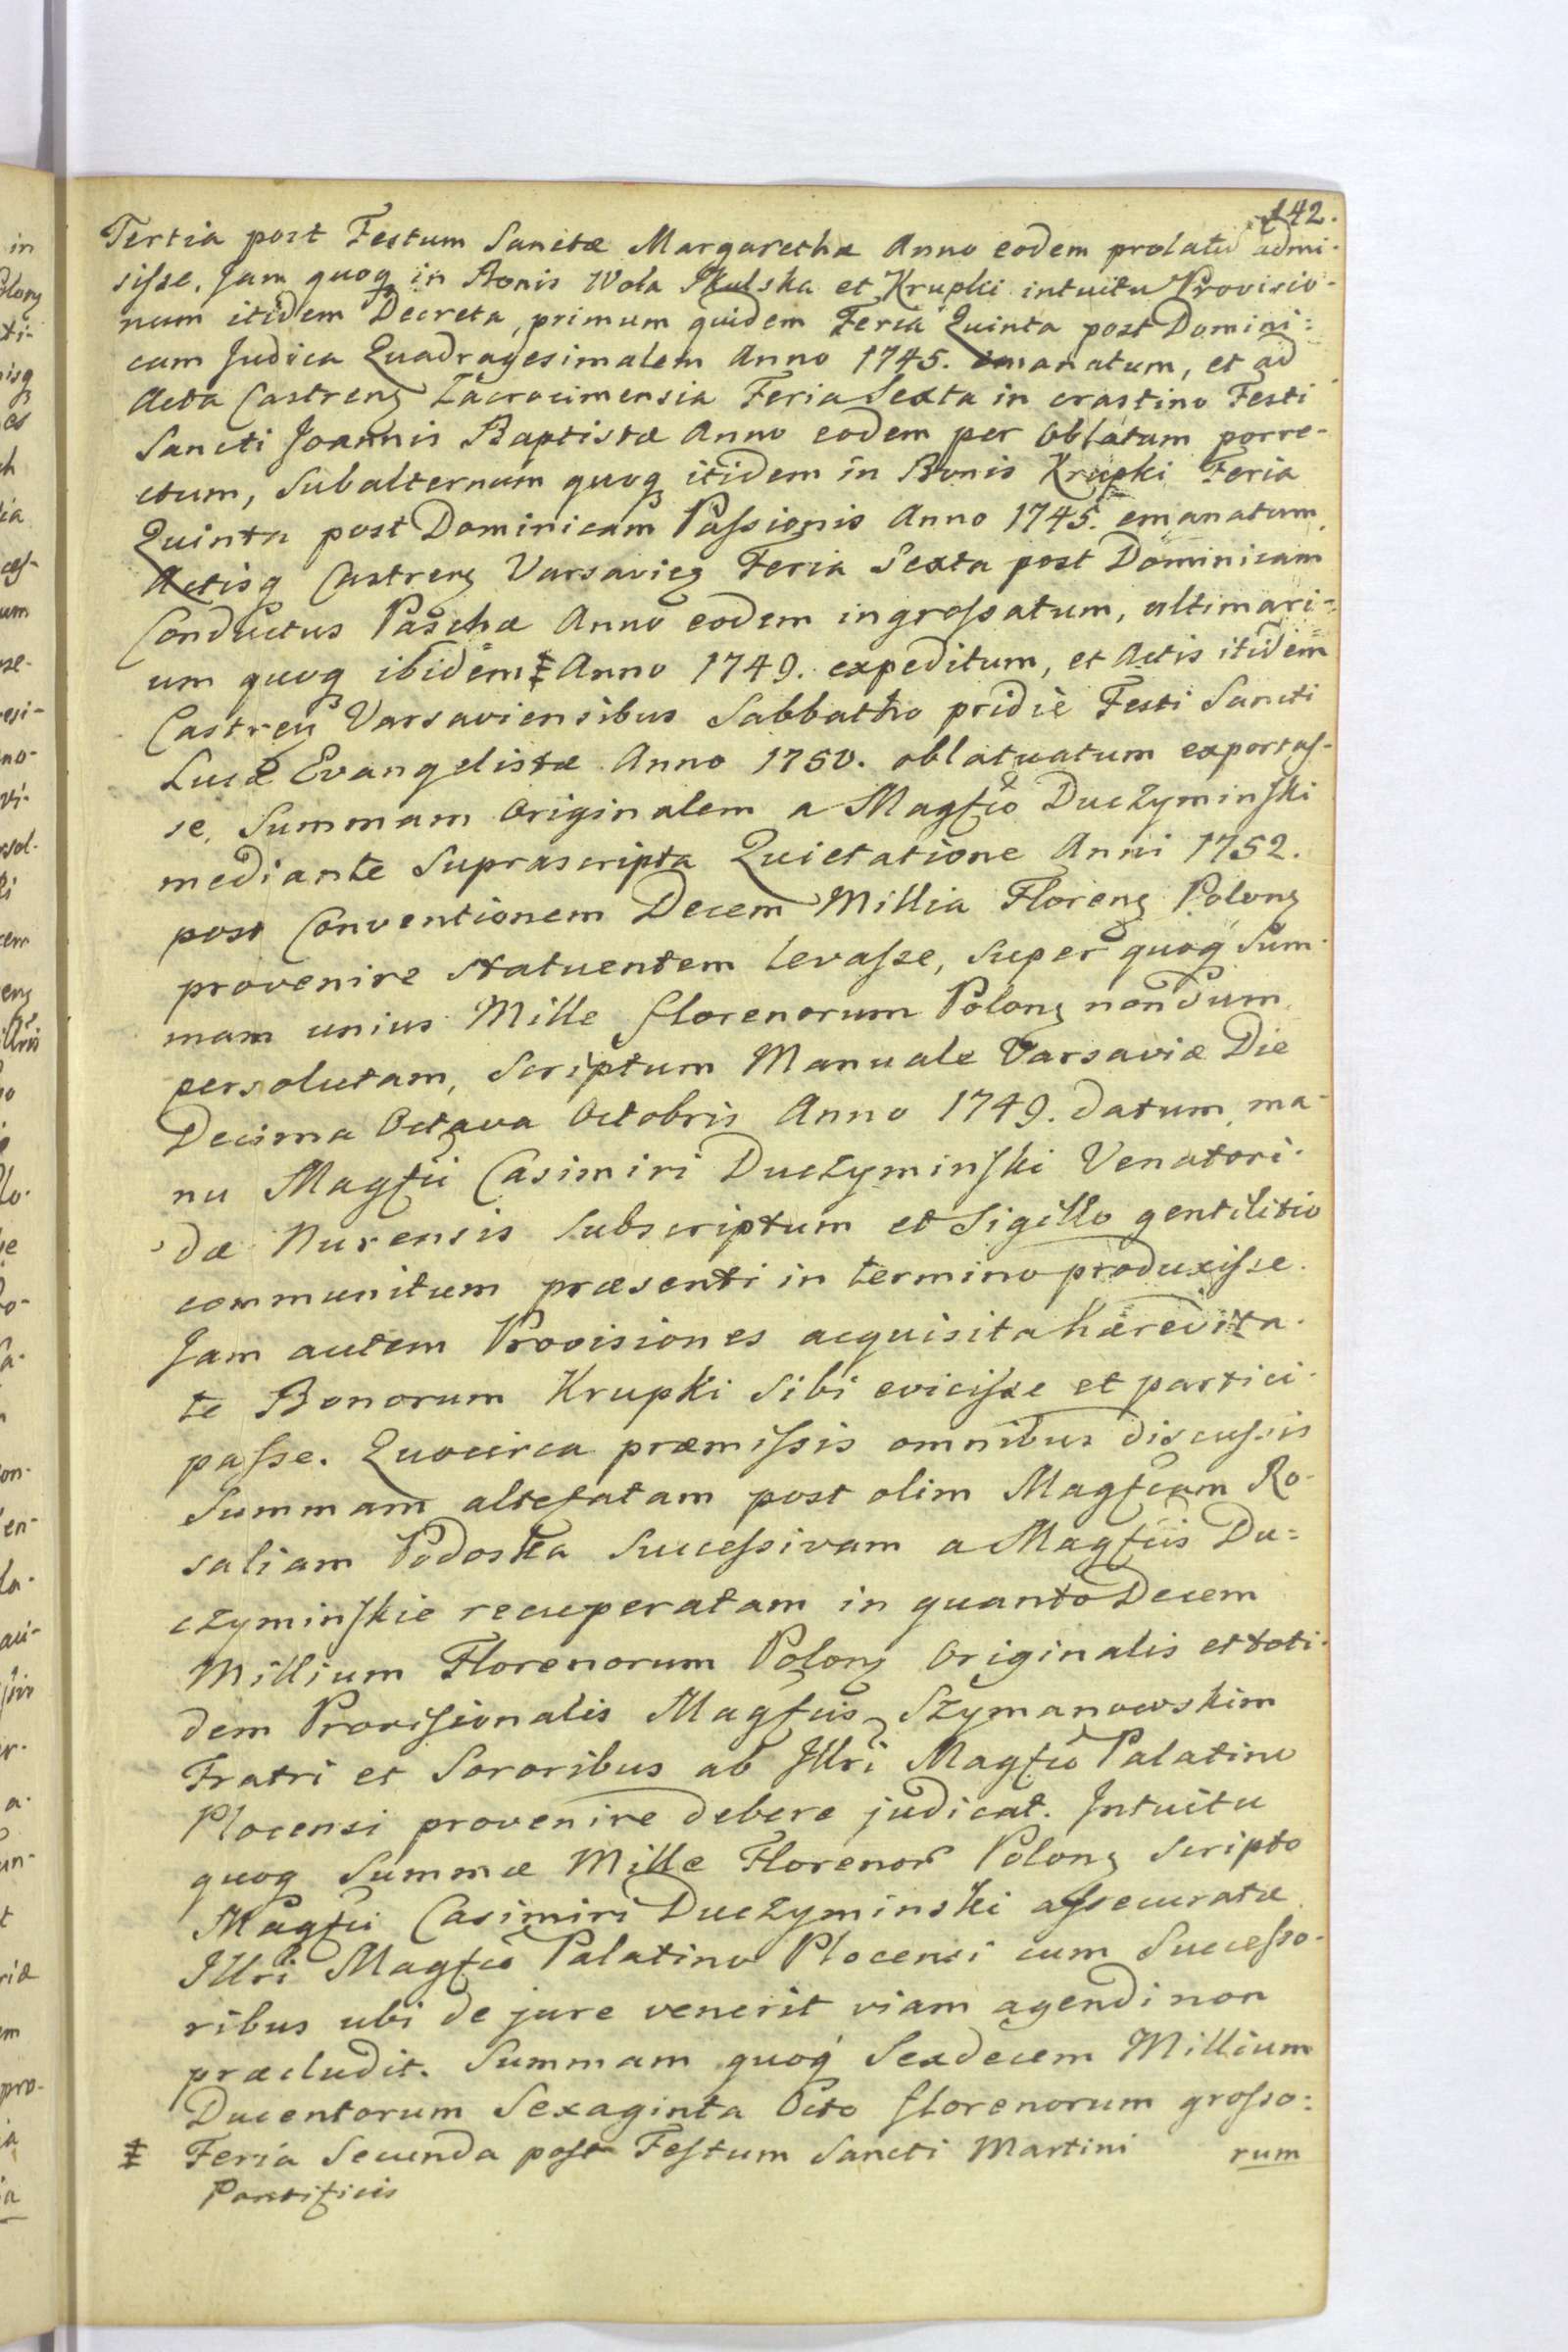 142.
Tertia post Festum Sanctæ Margarethæ Anno eodem prolatū admi-
sisse. Jam quoq in Bonis Wola Skulska et Krupki intuitu Provisio-
num itidem Decreta, primum quidem Feria Quinta post Domini=
cam Judica Quadragesimalem Anno 1745. emanatum, et ad
Acta Castreng Zacrocimensia Feria Sexta in crastino Festi
Sancti Joannis Baptistæ Anno eodem per Oblatam porre-
ctum, Subalternum quoq itidem in Bonis Krupki Feria
Quinta post Dominicam Passionis Anno 1745. emanatum
Actisq Castreng Varsavieg Feria Sexta post Dominicam
Conductus Paschæ Anno eodem ingrossatum, ultimari=
um quoq ibidem ‡ Anno 1749. expeditum, et Actis itidem
Castreg Varsaviensibus Sabbatho pridie Festi Sancti
Lucæ Evangelistæ Anno 1750. oblatuatum exportas-
se, Summam Originalem a Magfco Duczyminski
mediante Suprascripta Quietatione Anni 1752.
post Conventionem Decem Millia Floreng Polong
provenire statuentem levasse, super quoq Sum-
mam unius Mille florenorum Polong nondum
persolutam, Scriptum Manuale Varsaviæ Die
Decima Octava Octobris Anno 1749. datum, ma-
nu Magfci Casimiri Duczyminski Venatori-
dæ Nurensis Subscriptum et Sigillo gentilitio
communitum præsenti in termino produxisse.
Jam autem Provisiones acquisita hæredita-
te Bonorum Krupki Sibi evicisse et partici-
passe. Quocirca præmissis omnibus discussis
Summam altefatam post olim Magfcam Ro-
saliam Podoska Successivam a Magfcis Du=
czyminskie recuperatam in quanto Decem
Millium Florenorum Polong Originalis et toti-
dem Provisionalis Magfcis Szymanowskim
Fratri et Sororibus ab Illri Magfco Palatino
Plocensi provenire debere judicat. Intuitu
quoq Summæ Mille Florenor Polong Scripto
Magfci Casimiri Duczyminski assecuratæ
Illri Magfco Palatino Plocensi cum Successo-
ribus ubi de jure venerit viam agendi non
præcludit. Summam quoq Sexdecem Millium
Ducentorum Sexaginta Octo florenorum grosso=
rum
‡ Feria Secunda post Festum Sancti Martini
Pontificis